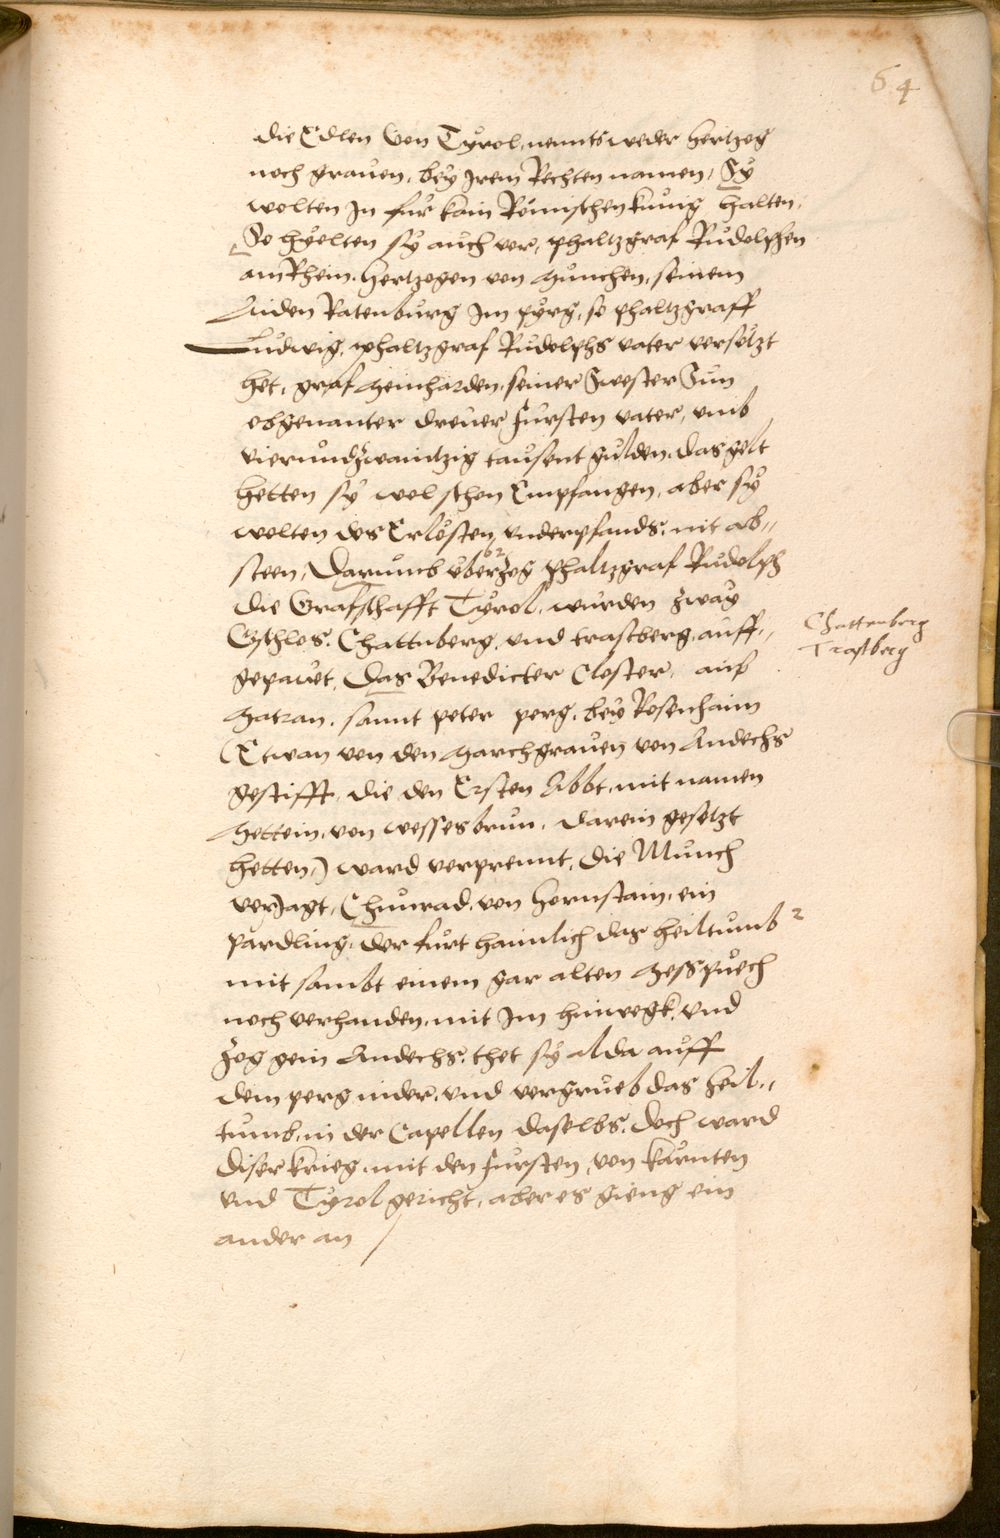 64
die Edlen von Tyrol, nennts weder hertzog
noch grauen, bey Irem Rechten namen, Sy
wolten In fur kain Römischen kunig halten,
So hyelten sy auch vor, phaltzgraf Rudolphen
am Rhein, hertzogen von Munchen, seinem
Aiden Ratenburg Im pyrg, so phaltzgraff
Ludwig, phaltzgraf Rudolphs vater versetzt
het, graf Meinharden, seiner Swester Sun
obgenanter dreuer Fursten vater, umb
vierundzwaintzig tausent gulden, das gelt
hetten sy wol schon Empfangen, aber sy
wolten des Erlösten underpfands, nit ab,,
steen, Darumb uberzog Phaltzgraf Rudolph
die Grafschafft Tyrol, wurden zway
Gschlos, Chattnberg, und trastberg, auff,,
Chattenberg
Trastberg
gepauet, Das Benedicter Closter, auf
Matran, sannt peter perg, bey Rosenhaim
(Etwan von den Marchgrauen von Andechs
gestifft, die den Ersten Abbt, mit namen
Mettein, von wessesbrun, darein gesetzt
hetten,) ward verprennt, die Munch
verJagt, Chunrad, von hornstain, ein
pardling, der furt haimlich das heiltumb
mit sambt einem gar alten Messpuech
noch verhanden, mit Im hinwegk, und
zog gein Andechs, thet sy alda auff
dem perg nider, und vergrueb das heil,,
tumb, in der Capellen daselbs, doch ward
diser krieg, mit den Fursten, von karnten
und Tyrol gericht, aber es gieng ein
ander an